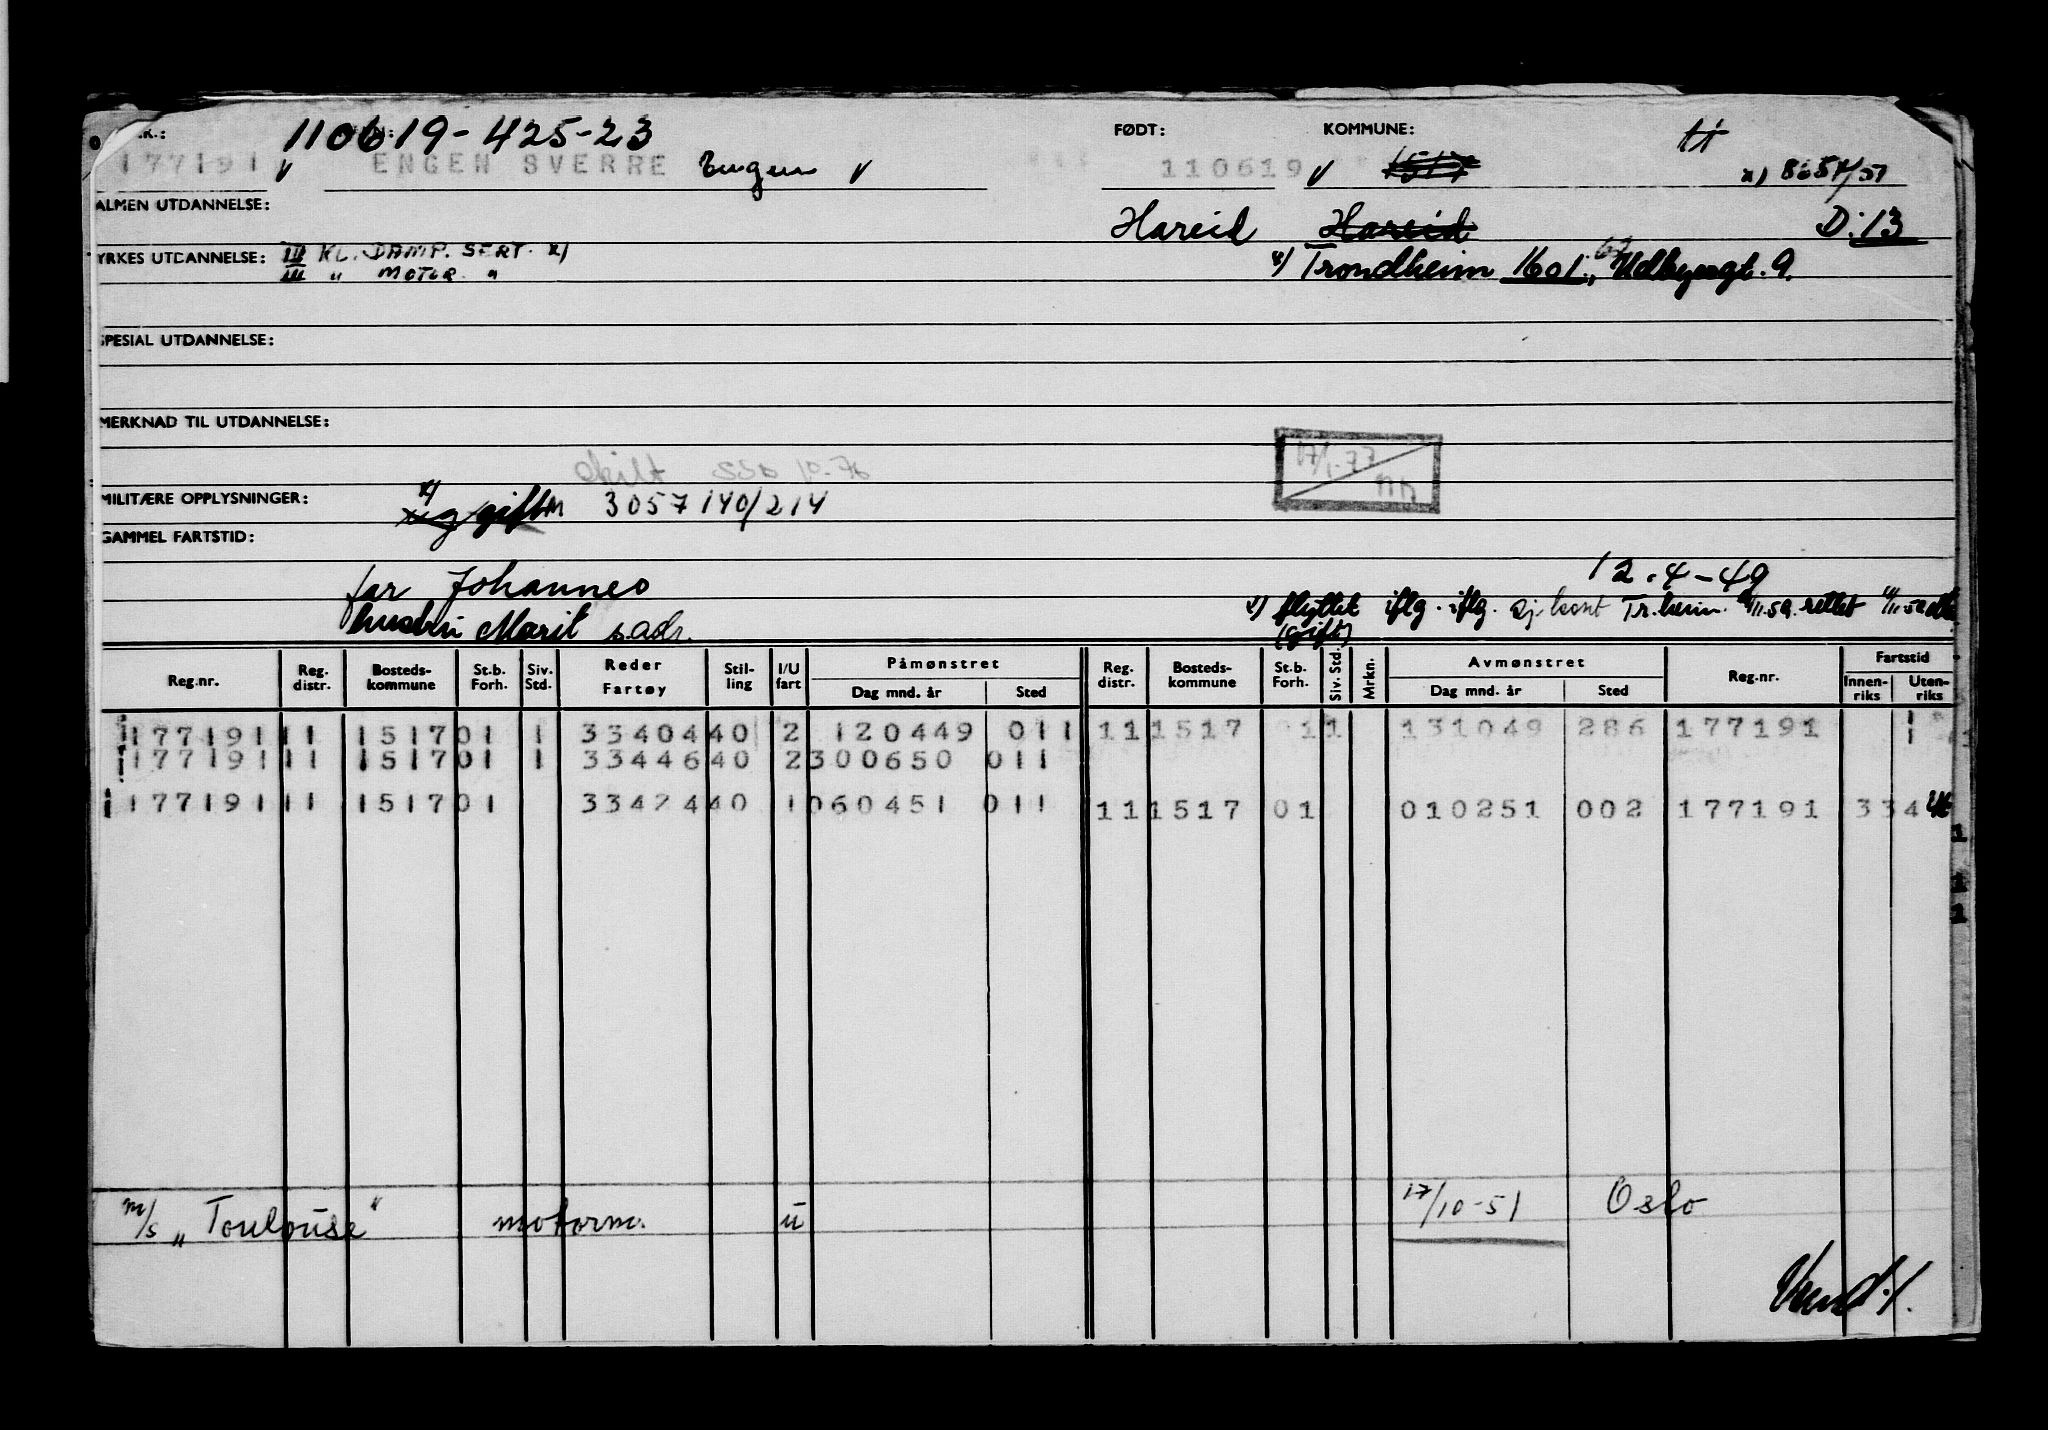 110619-425-23 FØDT: KOMMUNE:
177191 V ENGEN SVERRE Engen V 110619 V 1517 x) 8651/51
ALMEN UTDANNELSE: Hareid Hareid D:13
YRKES UTDANNELSE: III KL. DAMP. SERT. x)
III " MOTOR. " x) Trondheim 1601,
SPESIAL UTDANNELSE:
MERKNAD TIL UTDANNELSE:
17/1-77
skilt SSB 10-76
MILITÆRE OPPLYSNINGER: x) gift M 3057140/214
GAMMEL FARTSTID:
far Johannes 12.4-49
hustru Marit s.adr. x) flyttet iflg. iflg. sj.kont Tr.heim. rettet
(gift)
Reg.nr. Reg. distr. Bosteds-kommune St.b. Forh. Siv. Std. Reder Fartøy Stil-ling I/U fart Påmønstret Dag mnd. år Sted Reg. distr. Bosteds-kommune St.b. Forh. Siv. Std. Mrkn. Avmønstret Dag mnd. år Sted Reg.nr. Fartstid Innen-riks Uten-riks
177191 11 1517 01 1 33404 40 2 120449 011 11 1517 01 1 131049 286 177191
177191 11 1517 01 1 33446 40 2 300650 011
177191 11 1517 01 33424 40 1 060451 011 11 1517 01 010251 002 177191 334
m/s "Toulouse" motorm. u 17/10-51 Oslo
Vend!.